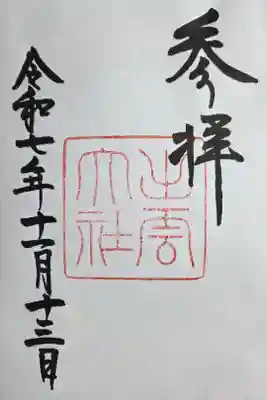 参拝
出雲大社
令和七年十一月十三日